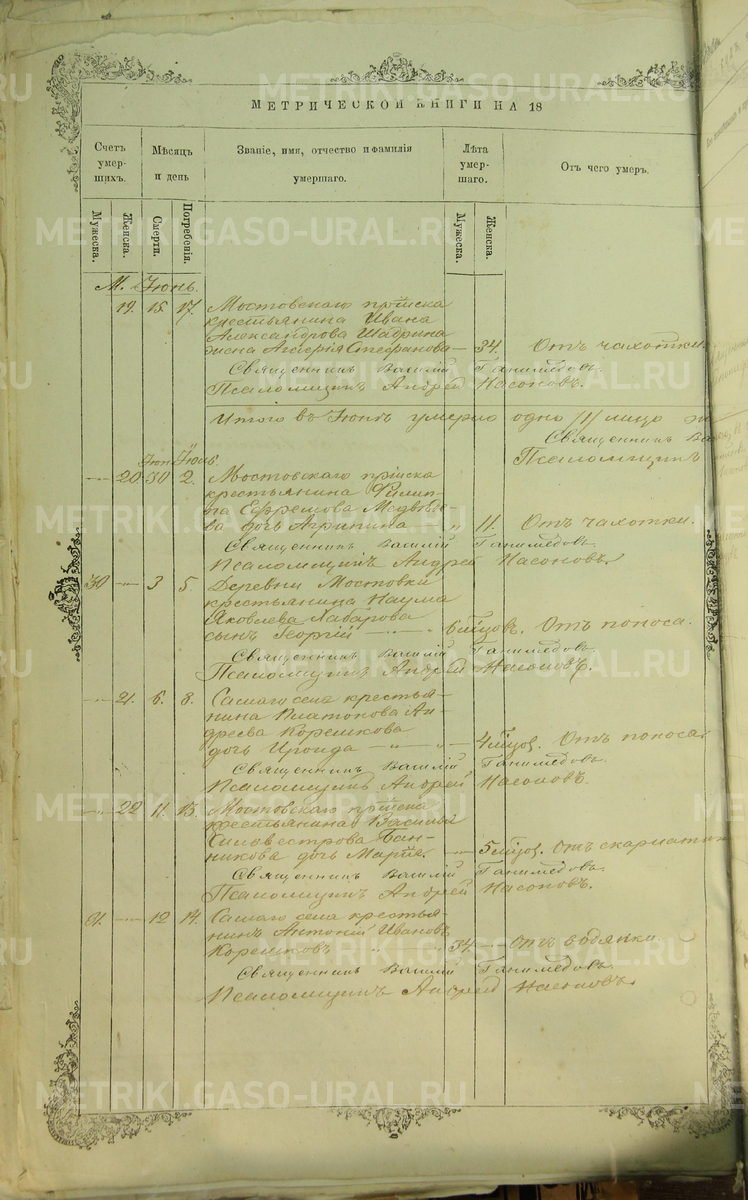 METRIKI.GASO-URAL.RU
МЕТРИЧЕСКОЙ КНИГИ НА 18
Счетъ умершихъ.
Мѣсяцъ и день
Званіе, имя, отчество и фамилія умершаго.
Лѣта умершаго.
Отъ чего умеръ.
Мужеска.
Женска.
Смерти.
Погребенія.
Мужеска.
Женска.
М. Іюнь.
19. 15. 17. Мостовскаго пріиска
крестьянина Ивана
Александрова Шадрина
жена Стефанова — 34. Отъ чахотки.
Священникъ Василій Ганимедовъ.
Псаломщикъ Андрей Насоновъ.
Итого въ Іюнѣ умерло одно /1/ лицо
Священникъ
Псаломщикъ
Іюн. Іюль.
— 20. 30 2. Мостовскаго пріиска
крестьянина Филип-
па Ефремова Медвѣде-
ва дочь Агрипина — " 11. Отъ чахотки.
Священникъ Василій Ганимедовъ.
Псаломщикъ Андрей Насоновъ.
30 — 3 5. Деревни Мостовки
крестьянина Наума
Яковлева
сынъ Георгій — 6 мѣцов. Отъ поноса.
Священникъ Василій Ганимедовъ.
Псаломщикъ Андрей Насоновъ.
— 21. 6. 8. Самаго села крестья-
нина Платонова Ан-
дреева Корешкова
дочь Ироида — " — 4 мѣцов. Отъ поноса.
Священникъ Василій Ганимедовъ.
Псаломщикъ Андрей Насоновъ.
" 22 11. 13. Мостовскаго пріиска
крестьянина Василія
Силовестрова Бан-
никова дочь Марія. — 5 мѣцов. Отъ скарлатин
Священникъ Василій Ганимедовъ.
Псаломщикъ Андрей Насоновъ.
— 12 14. Самаго села крестья-
нинъ Антоній Ивановъ
Корешковъ " 34. — Отъ водянки.
Священникъ Василій Ганимедовъ.
Псаломщикъ Андрей Насоновъ.